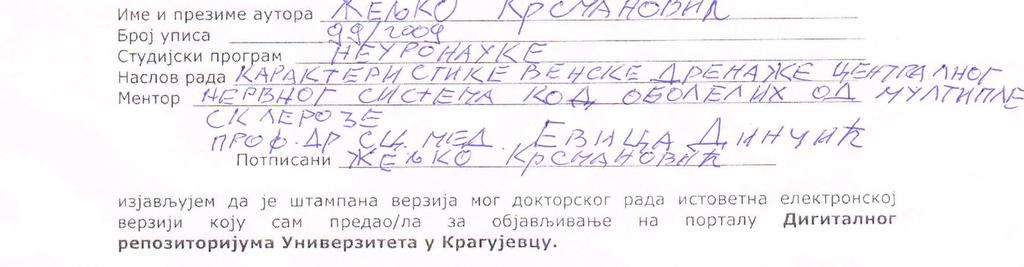 Име и презиме аутора ЖЕЉКО КРСМАНОВИЋ
Број уписа 99/2009
Студијски програм НЕУРОНАУКЕ
Наслов рада КАРАКТЕРИСТИКЕ ВЕНСКЕ ДРЕНАЖЕ ЦЕНТРАЛНОГ
Ментор НЕРВНОГ СИСТЕМА КОД ОБОЛЕЛИХ ОД МУЛТИПЛЕ
СКЛЕРОЗЕ
ПРОФ. ДР СЦ. МЕД. ЕВИЦА ДИНЧИЋ
Потписани ЖЕЉКО КРСМАНОВИЋ
изјављујем да је штампана верзија мог докторског рада истоветна електронској
верзији коју сам предао/ла за објављивање на порталу Дигиталног
репозиторијума Универзитета у Крагујевцу.